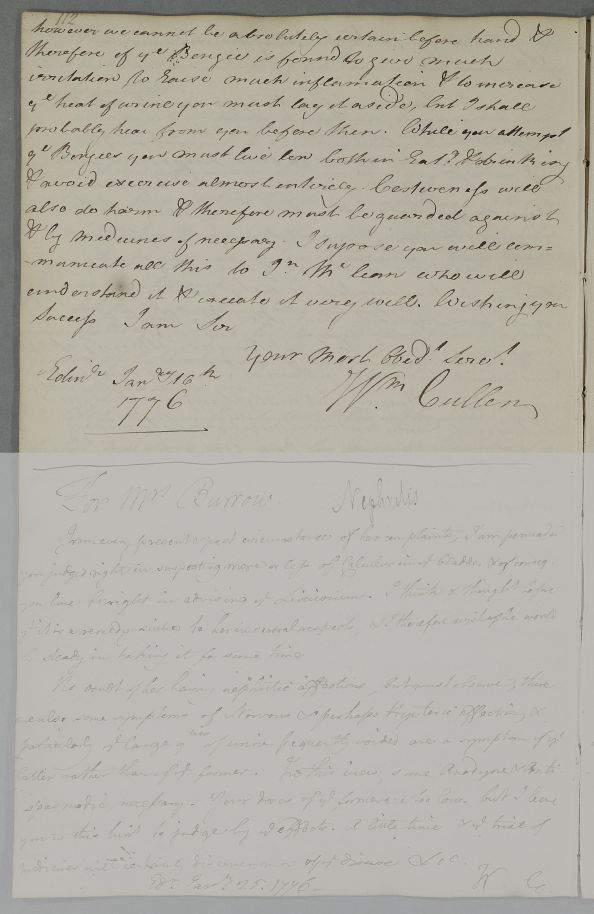 112
however we cannot be absolutely certain before hand &
therefore if ye Bougie is found to give much
irritation to raise much inflamation & to increase
ye heat of urine you must lay it aside, but I shall
probably hear from you before then. While you attempt
ye Bougies you must live low both in Eatg & drinking
& avoid exercise almost entirely. Costiveness will
also do harm & therefore must be guarded against
& by medicines if necessary. I supose you will com=
=municate all this to Jn Mc lean who will
understand it & execute it very well. Wishing you
Success I am Sir
Your Most Obedt Servt
Wm Cullen
Edinr Janry 16th
1776
For Mrs Burrow. Nephritis
From every present & past circumstances of her complaints, I am persuaded
you judged right in suspecting more or less of Calculus in ye bladder, & of conseq.
you have been right in advising ye Lixivium. I think & thought before
yt it is a remedy suited to her in several respects, & I therefore wish she would
be steady in taking it for some time
No doubt of her having nephritic affections, but must observe, there
are also some symptoms of Nervous & perhaps Hysteric affection, &
particularly ye large qties of urine frequently voided are a symptom of ye
latter rather than of ye former. In this view, some Anodyne & Anti-
spasmodic, necessary. Your doses of ye former are too low. but I leave
you in this hint to judge by ye effects. A little time & ye trial of
medicines will certainly discover more of ye disease &c.
Edr. Janry 25. 1776 W C